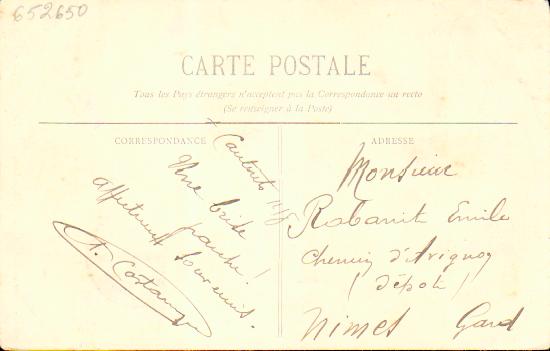 652650
CARTE POSTALE
Tous les Pays étrangers n'acceptent pas la Correspondance au recto
(Se renseigner à la Poste)
CORRESPONDANCE
Une
souvenirs.
A. Costa
ADRESSE
Monsieur
Rabanit Emile
Chemin d'Avignon
(dépôt)
Nimes Gard